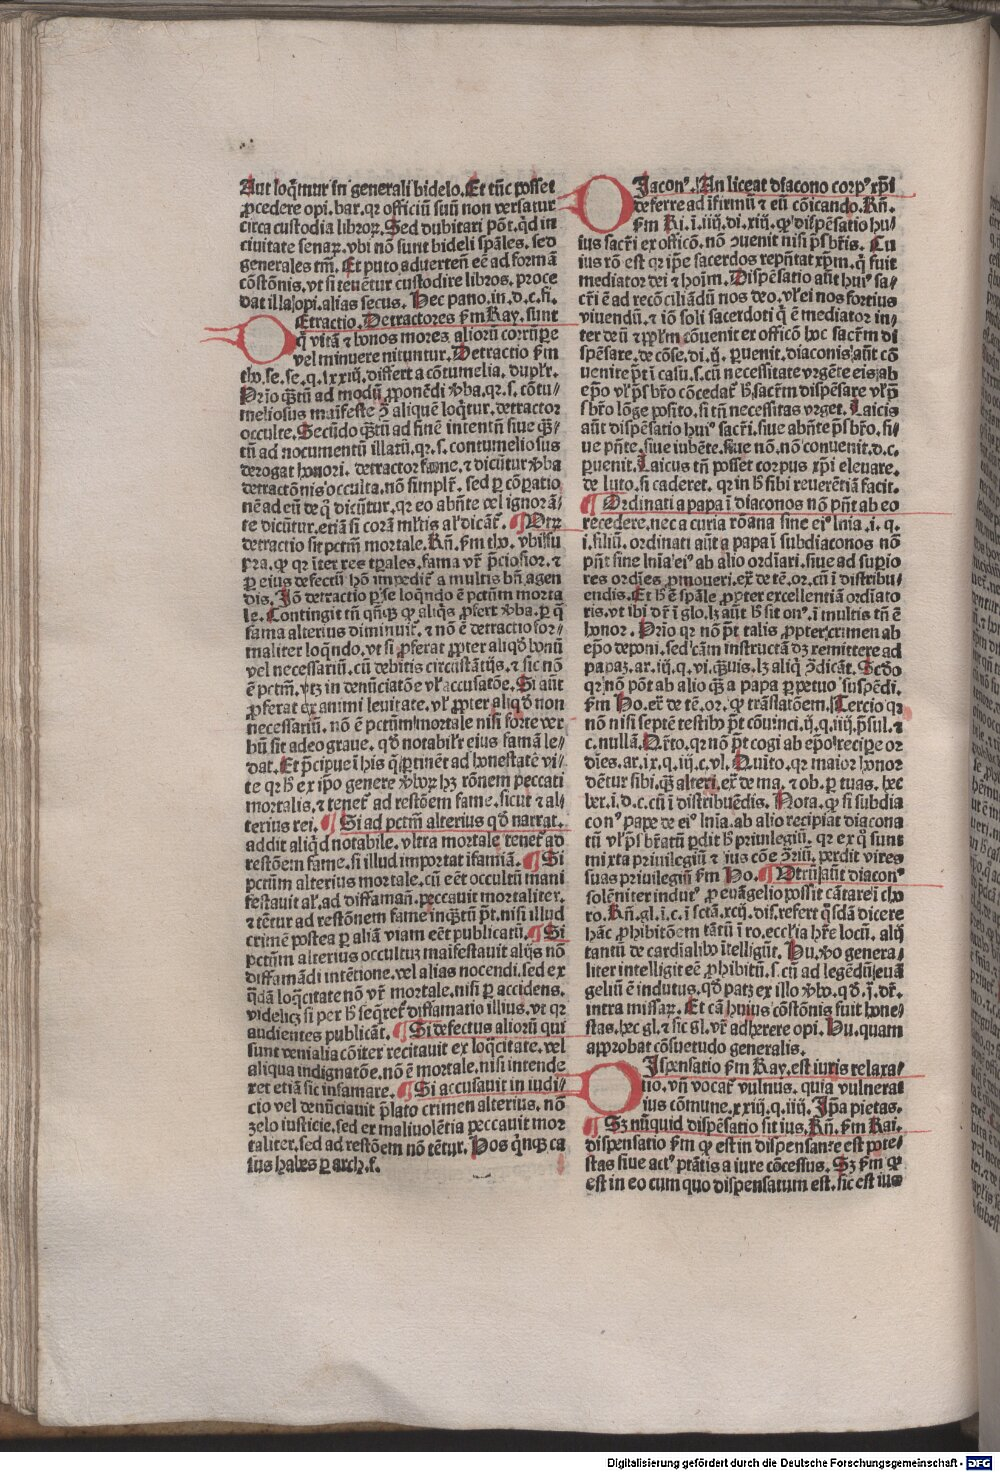 Aut loq̄mur in generali bidelo. Et tūc posset
ꝓcedere opi. bar. qꝛ officiū suū non versatur
circa custodia libroꝝ. Sed dubitari pōt. q̇d in
ciuitate senaꝝ. vbi nō sunt bideli spāles. sed
generales tm̄. Et puto aduerteñ eē ad formā
cōstōnis. vt si teneātur custodire libros. proce
dat illa opi. alias secus. Hec pano. in. d. c. fi.
Etractio. Detractores ẜm Ray. sunt
q̄ vitā ⁊ bonos mores aliorū corrūpe
vel minuere nituntur. Detractio ẜm
tho. se. se. q. lxxiij. differt a cōtumelia. duplr̄.
Prīo q̄stū ad modū ꝓponēdi v̓ba. qꝛ. s. cōtu⸗
meliosus maīfeste ꝯ̄ aliquē loq̄tur. detractor
occulte. Secūdo q̄stū ad finē intentū siue q̄⸗
tū ad nocumentū illatū. qꝛ. s. contumeliosus
derogat honori. detractor fame. ⁊ dicūtur v̓ba
detractōnis occulta. nō simplr̄. sed ꝑ cōpatio
nē ad eū de q̇ dicūtur. qꝛ eo abn̄te vel ignorā⸗
te dicūtur. etiā si corā ml̓tis al̓ dicāt̄. ¶ Vtꝝ
detractio sit pctm̄ mortale. Rn̄. ẜm tho. vbi su
pra. ꝙ qꝛ īter res tꝑales. fama vr̄ p̄ciosior. ⁊
ꝑ eius defectū hō impedit̄ a multis bn̄ agen
dis. Iō detractio ꝑ se loq̄ndo ē pctm̄ morta
le. Contingit tn̄ qn̄qꝫ ꝙ aliq̄s ꝓfert v̓ba. ꝑ q̄
fama alterius diminuit̄. ⁊ nō ē detractio for⸗
maliter loq̄ndo. vt si ꝓferat ꝓpter aliq̇d bonū
vel necessariū. cū debitis circūstātijs. ⁊ sic nō
ē pctm̄. vtꝫ in denūciatōe vl̓ accusatōe. Si aūt
ꝓferat ex animi leuitate. vl̓ ꝓpter aliq̇d non
necessariū. nō ē pctm̄ mortale nisi forte ver
bū sit adeo graue. q̇d notabilr̄ eius famā le⸗
dat. Et p̄cipue ī his q̄ ꝑtinēt ad honestatē vi⸗
te qꝛ h̄ ex ip̄o genere v̓boꝝ hꝫ rōnem peccati
mortalis. ⁊ tenet̄ ad restōem fame. sicut ⁊ al⸗
terius rei. ¶ Si ad pctm̄ alterius q̇d narrat.
addit aliq̇d notabile. vltra mortale tenet̄ ad
restōem fame. si illud importat īfamiā. ¶ Si
pctm̄ alterius mortale. cū eēt occultū mani
festauit al̓. ad diffamañ. peccauit mortaliter.
⁊ tētur ad restōnem fame inq̄stū p̄t. nisi illud
crimē postea ꝑ aliā viam eēt publicatū. ¶ Si
pctm̄ alterius occultuꝫ maīfestauit alijs nō
diffamādi intētione. vel alias nocendi. sed ex
q̄dā loq̄citate nō vr̄ mortale. nisi ꝑ accidens.
videlicꝫ si per h̄ seq̄ret̄ diffamatio illius. vt qꝛ
audientes publicāt. ¶ Si defectus aliorū qui
sunt venialia cōiter recitauit ex loq̄citate. vel
aliqua indignatōe. nō ē mortale. nisi intende
ret etiā sic infamare. ¶ Si accusauit in iudi⸗
cio vel denūciauit p̄lato crimen alterius. nō
zelo iusticie. sed ex maliuolētia peccauit mor
taliter. sed ad restōem nō tētur. Hos q̄nqꝫ ca
sus habes ꝑ arch. f.
Iacon⁹. An liceat diacono corp⁹ xp̄i
deferre ad īfirmū ⁊ eū cōicando. Rn̄.
ẜm Ri. ī. iiij. di. xiij. ꝙ dispēsatio hu⸗
ius sacr̄i ex officō. nō ꝯuenit nisi p̄sbr̄is. Cu
ius rō est qꝛ ip̄e sacerdos rep̄n̄tat xp̄m. q̄ fuit
mediator dei ⁊ hoīm. Dispēsatio aūt hui⁹ sa⸗
cr̄i ē ad recōciliādū nos deo. vl̓ ei nos fortius
viuendū. ⁊ iō soli sacerdoti q̄ ē mediator in⸗
ter deū ⁊ pplm̄ cōuenit ex officō hoc sacrm̄ di
spēsare. de cōse. di. ij. ꝑuenit. diaconis aūt cō
uenire p̄t ī casu. s. cū necessitate vrgēte eis ab
ep̄o vl̓ p̄sbr̄o cōcedat̄ h̄ sacrm̄ dispēsare vl̓ p̄
sbr̄o lōge posito. si tn̄ necessitas vrget. Laicis
aūt dispēsatio hui⁹ sacr̄i. siue abn̄te p̄sbr̄o. si⸗
ue pn̄te. siue iubēte. siue nō. nō conuenit. d. c.
ꝑuenit. Laicus tn̄ posset corpus xp̄i eleuare.
de luto. si caderet. qꝛ in h̄ sibi reuerētiā facit.
¶ Ordinati a papa ī diaconos nō pn̄t ab eo
recedere. nec a curia rōana sine ei⁹ lnīa. i. q.
i. siliū. ordinati aūt a papa ī subdiaconos nō
pn̄t sine lnīa ei⁹ ab alio ordīari. siue ad supio
res ordīes ꝓmoueri. ex̄ de tē. or. cū ī distribu⸗
endis. Et h̄ ē spāle ꝓpter excellentiā ordīato
ris. vt ibi dr̄ ī glo. lꝫ aūt h̄ sit on⁹. ī multis tn̄ ē
honor. Prīo qꝛ nō p̄t talis ꝓpter crimen ab
ep̄o deponi. sed cām instructā dꝫ remittere ad
papaꝫ. ar. iij. q. vi. q̄uis. lꝫ aliq̇ ꝯ̄dicāt. Scd̄o
qꝛ nō pōt ab alio q̄ a papa ꝑpetuo suspēdi.
ẜm Ho. ex̄ de tē. or. ꝙ trāslatōem. Tercio qꝛ
nō nisi septē testibꝰ p̄t cōuīnci. ij. q. iiij. p̄sul. ⁊
c. nullā. Qr̄to. qꝛ nō p̄t cogi ab ep̄o recipe or
dīes. ar. ix. q. iij. c. vl. Quīto. qꝛ maior honor
dētur sibi. q̄ alteri. ex̄ de ma. ⁊ ob. ꝑ tuas. hec
ber. ī. d. c. cū ī distribuēdis. Nota. ꝙ si subdia
con⁹ pape de ei⁹ lnīa. ab alio recipiat diacona
tū vl̓ p̄sbr̄atū pdit h̄ priuilegiū. qꝛ ex q̇ sunt
mixta priuilegiū ⁊ ius cōe ꝯ̄riū. perdit vires
suas priuilegiū ẜm Ho. ¶ Vtrū aūt diacon⁹
solēniter indut⁹ ꝓ euāgelio possit cātare ī cho
ro. Rn̄. gl. ī. c. ī sctā. xcij. dis. refert q̄sdā dicere
hāc ꝓhibitōem tātū ī ro. ecclīa hr̄e locū. alij
tantū de cardialibꝰ ītelligūt. Hu. v̓o genera⸗
liter intelligit eē ꝓhibitū. s. cū ad legēdū euā
geliū ē indutus. q̇d patꝫ ex illo v̓bo. q̇d. ī. dr̄.
intra missaꝝ. Et cā huius cōstōnis fuit hone⸗
stas. hec gl. ⁊ sic gl. vr̄ adherere opi. Hu. quam
approbat cōsuetudo generalis.
Ispensatio ẜm Ray. est iuris relaxa⸗
tio. vn̄ vocat̄ vulnus. quia vulnerat
ius cōmune. xxiij. q. iiij. Ip̄a pietas.
¶ Sꝫ nūquid dispēsatio sit ius. Rn̄. ẜm Rai.
dispensatio ẜm ꝙ est in dispensante est pote⸗
stas siue act⁹ ptātis a iure cōcessus. Sꝫ ẜm ꝙ
est in eo cum quo dispensatum est. sic est ius
Digitalisierung gefördert durch die Deutsche Forschungsgemeinschaft - DFG